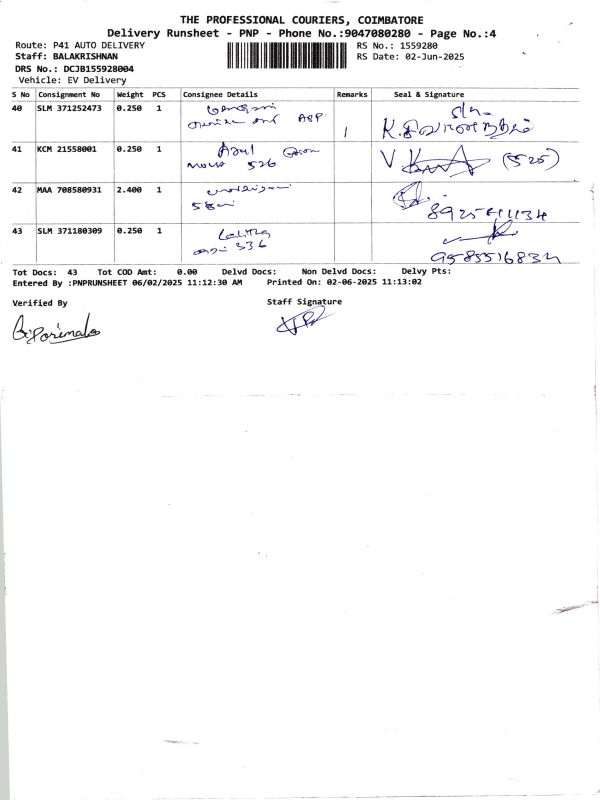 THE PROFESSIONAL COURIERS, COIMBATORE
Delivery Runsheet - PNP - Phone No.:9047080280 - Page No.:4
Route: P41 AUTO DELIVERY
RS No.: 1559280
Staff: BALAKRISHNAN
RS Date: 02-Jun-2025
DRS No.: DCJB155928004
Vehicle: EV Delivery
S No Consignment No Weight PCS Consignee Details Remarks Seal & Signature
40 SLM 371252473 0.250 1
41 KCM 21558001 0.250 1
526 (525)
42 MAA 708580931 2.400 1
43 SLM 371180309 0.250 1
Lalitha
336
Tot Docs: 43 Tot COD Amt: 0.00 Delvd Docs: Non Delvd Docs: Delvy Pts:
Entered By :PNPRUNSHEET 06/02/2025 11:12:30 AM Printed On: 02-06-2025 11:13:02
Verified By Staff Signature